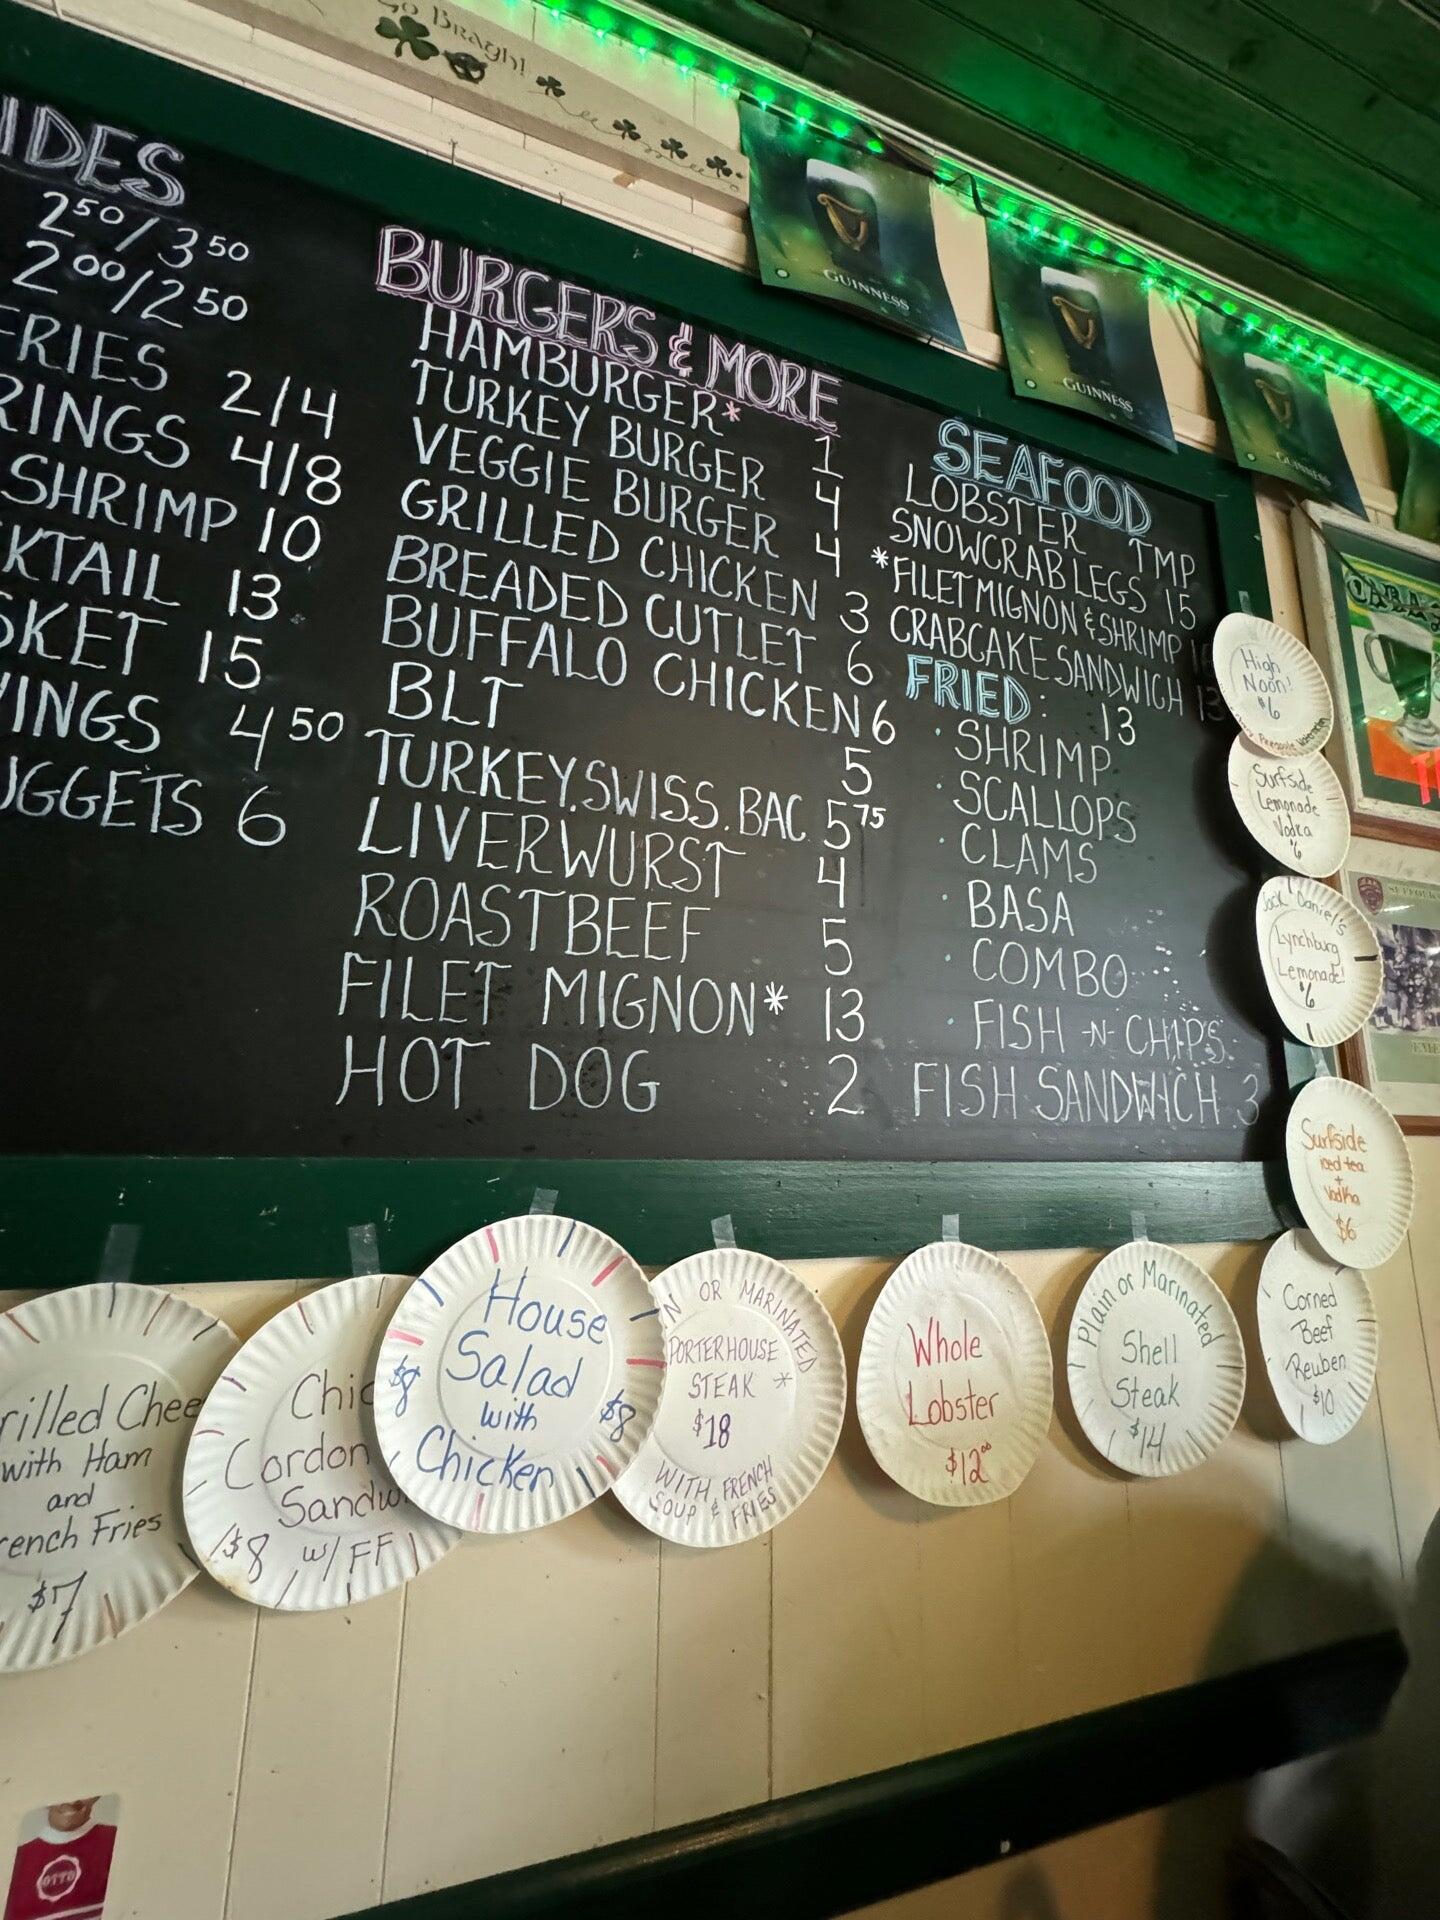 Go Bragh!
GUINNESS
GUINNESS
GUINNESS
IDES
2⁵⁰/3⁵⁰
2⁰⁰/2⁵⁰
FRIES 2/4
RINGS 4/8
SHRIMP 10
KTAIL 13
SKET 15
INGS 4⁵⁰
UGGETS 6
BURGERS & MORE
HAMBURGER* 1
TURKEY BURGER 4
VEGGIE BURGER 4
GRILLED CHICKEN 3
BREADED CUTLET 6
BUFFALO CHICKEN 6
BLT 5
TURKEY.SWISS.BAC. 5⁷⁵
LIVERWURST 4
ROASTBEEF 5
FILET MIGNON* 13
HOT DOG 2
SEAFOOD
LOBSTER TMP
SNOWCRAB LEGS 15
*FILET MIGNON & SHRIMP
CRABCAKE SANDWICH 13
FRIED: 13
· SHRIMP
· SCALLOPS
· CLAMS
· BASA
· COMBO
· FISH -N- CHIPS
FISH SANDWICH 3
High
Noon!
$6
Surfside
Lemonade
Vodka
$6
Jack Daniel's
Lynchburg
Lemonade!
$6
Surfside
iced tea
+
Vodka
$6
Corned
Beef
Reuben
$10
Plain or Marinated
Shell
Steak
$14
Whole
Lobster
$12⁰⁰
N OR MARINATED
PORTERHOUSE
STEAK *
$18
WITH FRENCH
SOUP & FRIES
House
Salad
$8 with $8
Chicken
Chic
Cordon
Sandw
$8 w/ FF
rilled Chee
with Ham
and
rench Fries
$7
OTTO